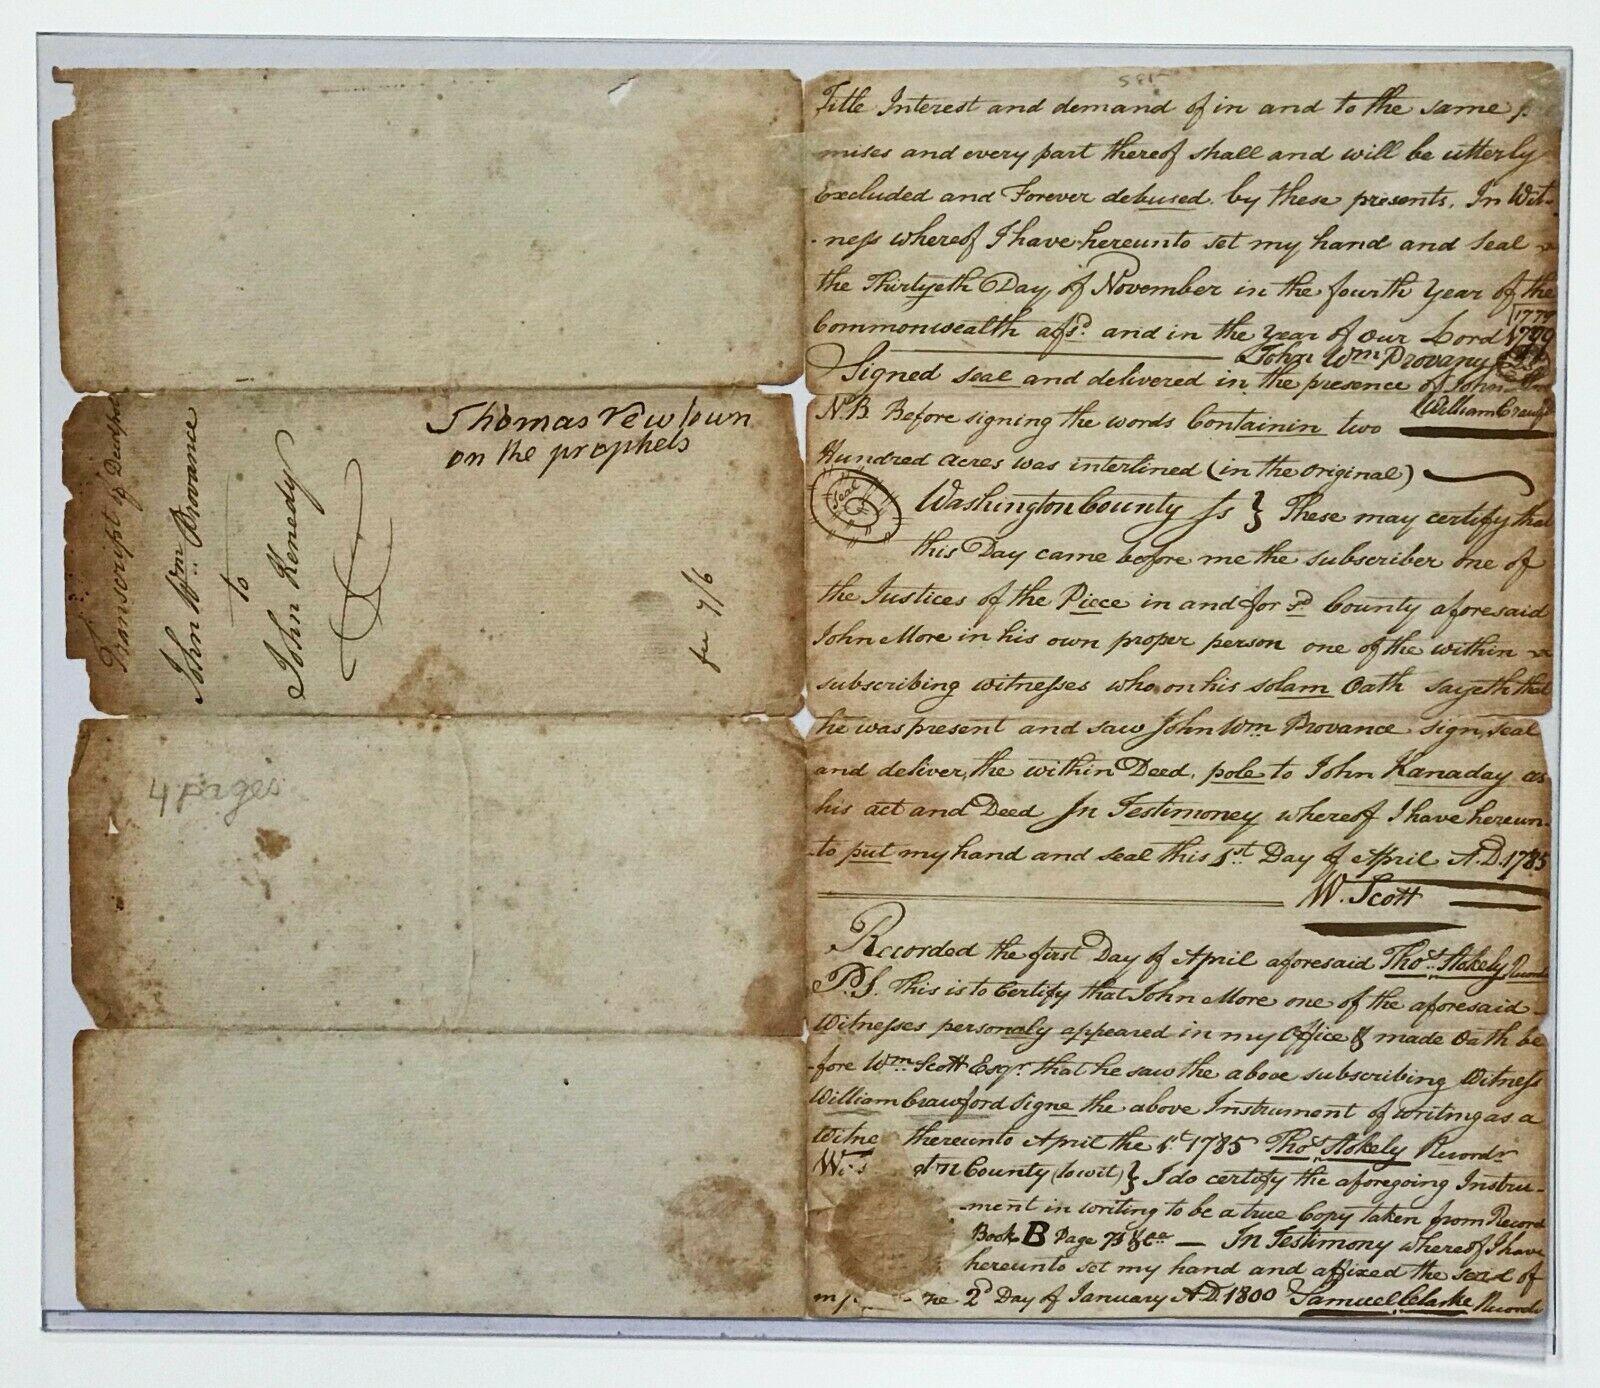 Transcript of Deedpole
John Wm Provance
to
John Kenedy
Thomas Newtown
on the prophets
fee 7/6
4 pages
Title Interest and demand of in and to the same
mises and every part thereof shall and will be utterly
Excluded and Forever debused by these presents. In Wit-
-ness whereof I have hereunto set my hand and Seal
the Thirtyeth Day of November in the fourth Year of the
Commonwealth afsd. and in the Year of Our Lord 1779
1779
John Wm Provany
Signed seal and delivered in the presence of John
William Crawfd
N.B Before signing the words Containin two
Hundred acres was interlined (in the original)
Seal
Washington County Ss } These may certify that
this Day came before me the subscriber one of
the Justices of the Piece in and for sd County aforesaid
John More in his own proper person one of the within
subscribing witnesses who on his solam Oath sayeth that
he was present and saw John Wm Provance sign, seal
and deliver, the within Deed, pole to John Kanaday as
his act and Deed In Testimoney whereof I have hereun-
-to put my hand and seal this 1st Day of April A.D. 1785
W. Scott
Recorded the first Day of April aforesaid Thos. Stokely Recordr
P.S. This is to Certify that John More one of the aforesaid
Witnesses personaly appeared in my Office & made Oath be
-fore Wm Scott Esqr. that he saw the above subscribing Witness
William Crawford Signe the above Instrument of writing as a
Witne thereunto April the 1st 1785 Thos. Stokely Recordr
County (to wit) } I do certify the aforegoing Instru-
ment in writing to be a true Copy taken from Record
Book B Page 73 &ca — In Testimony whereof I have
hereunto set my hand and affixed the Seal of
2d Day of January A.D. 1800 Samuel Clarke Recordr